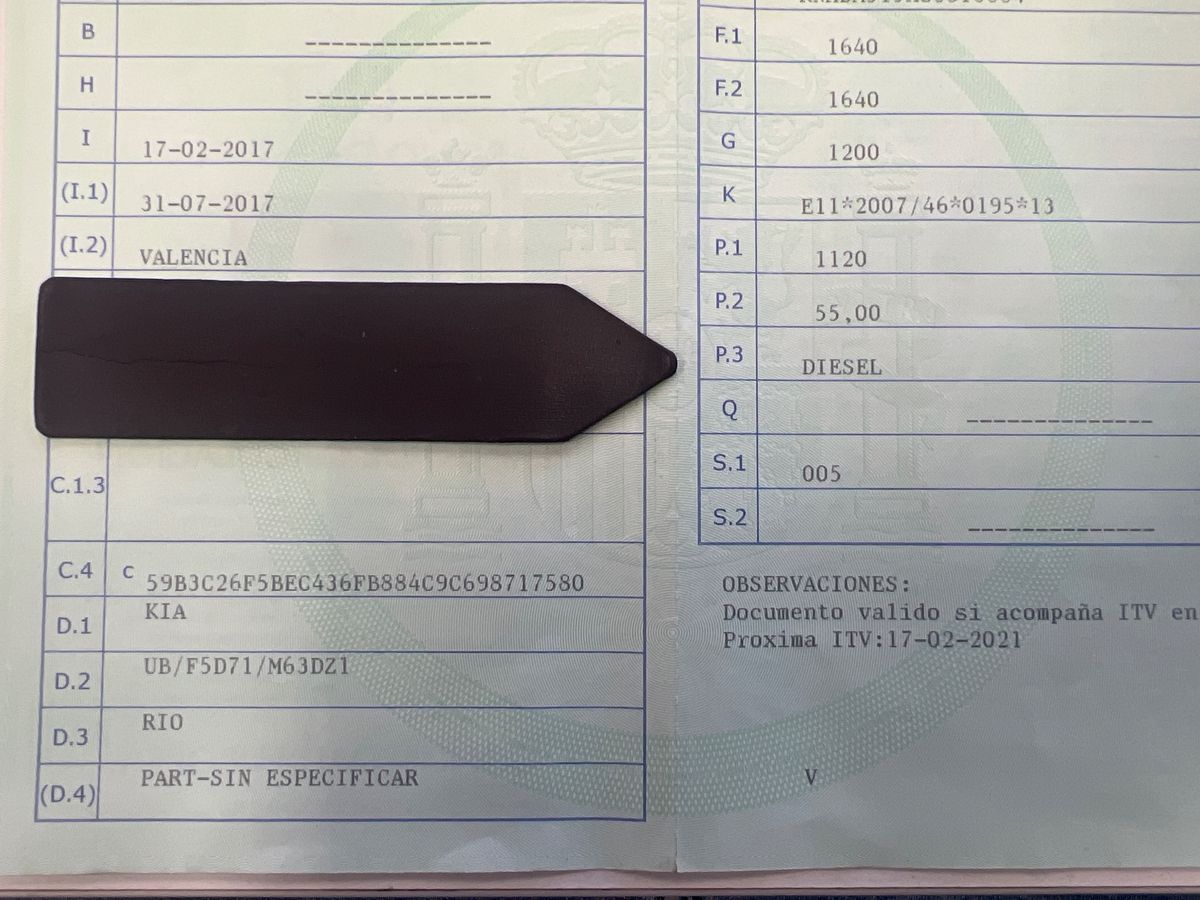 B --------------
H --------------
I 17-02-2017
(I.1) 31-07-2017
(I.2) VALENCIA
C.1.3
C.4 c 59B3C26F5BEC436FB884C9C698717580
D.1 KIA
D.2 UB/F5D71/M63DZ1
D.3 RIO
(D.4) PART-SIN ESPECIFICAR
F.1 1640
F.2 1640
G 1200
K E11*2007/46*0195*13
P.1 1120
P.2 55,00
P.3 DIESEL
Q --------------
S.1 005
S.2 --------------
OBSERVACIONES:
Documento valido si acompaña ITV en
Proxima ITV:17-02-2021
V